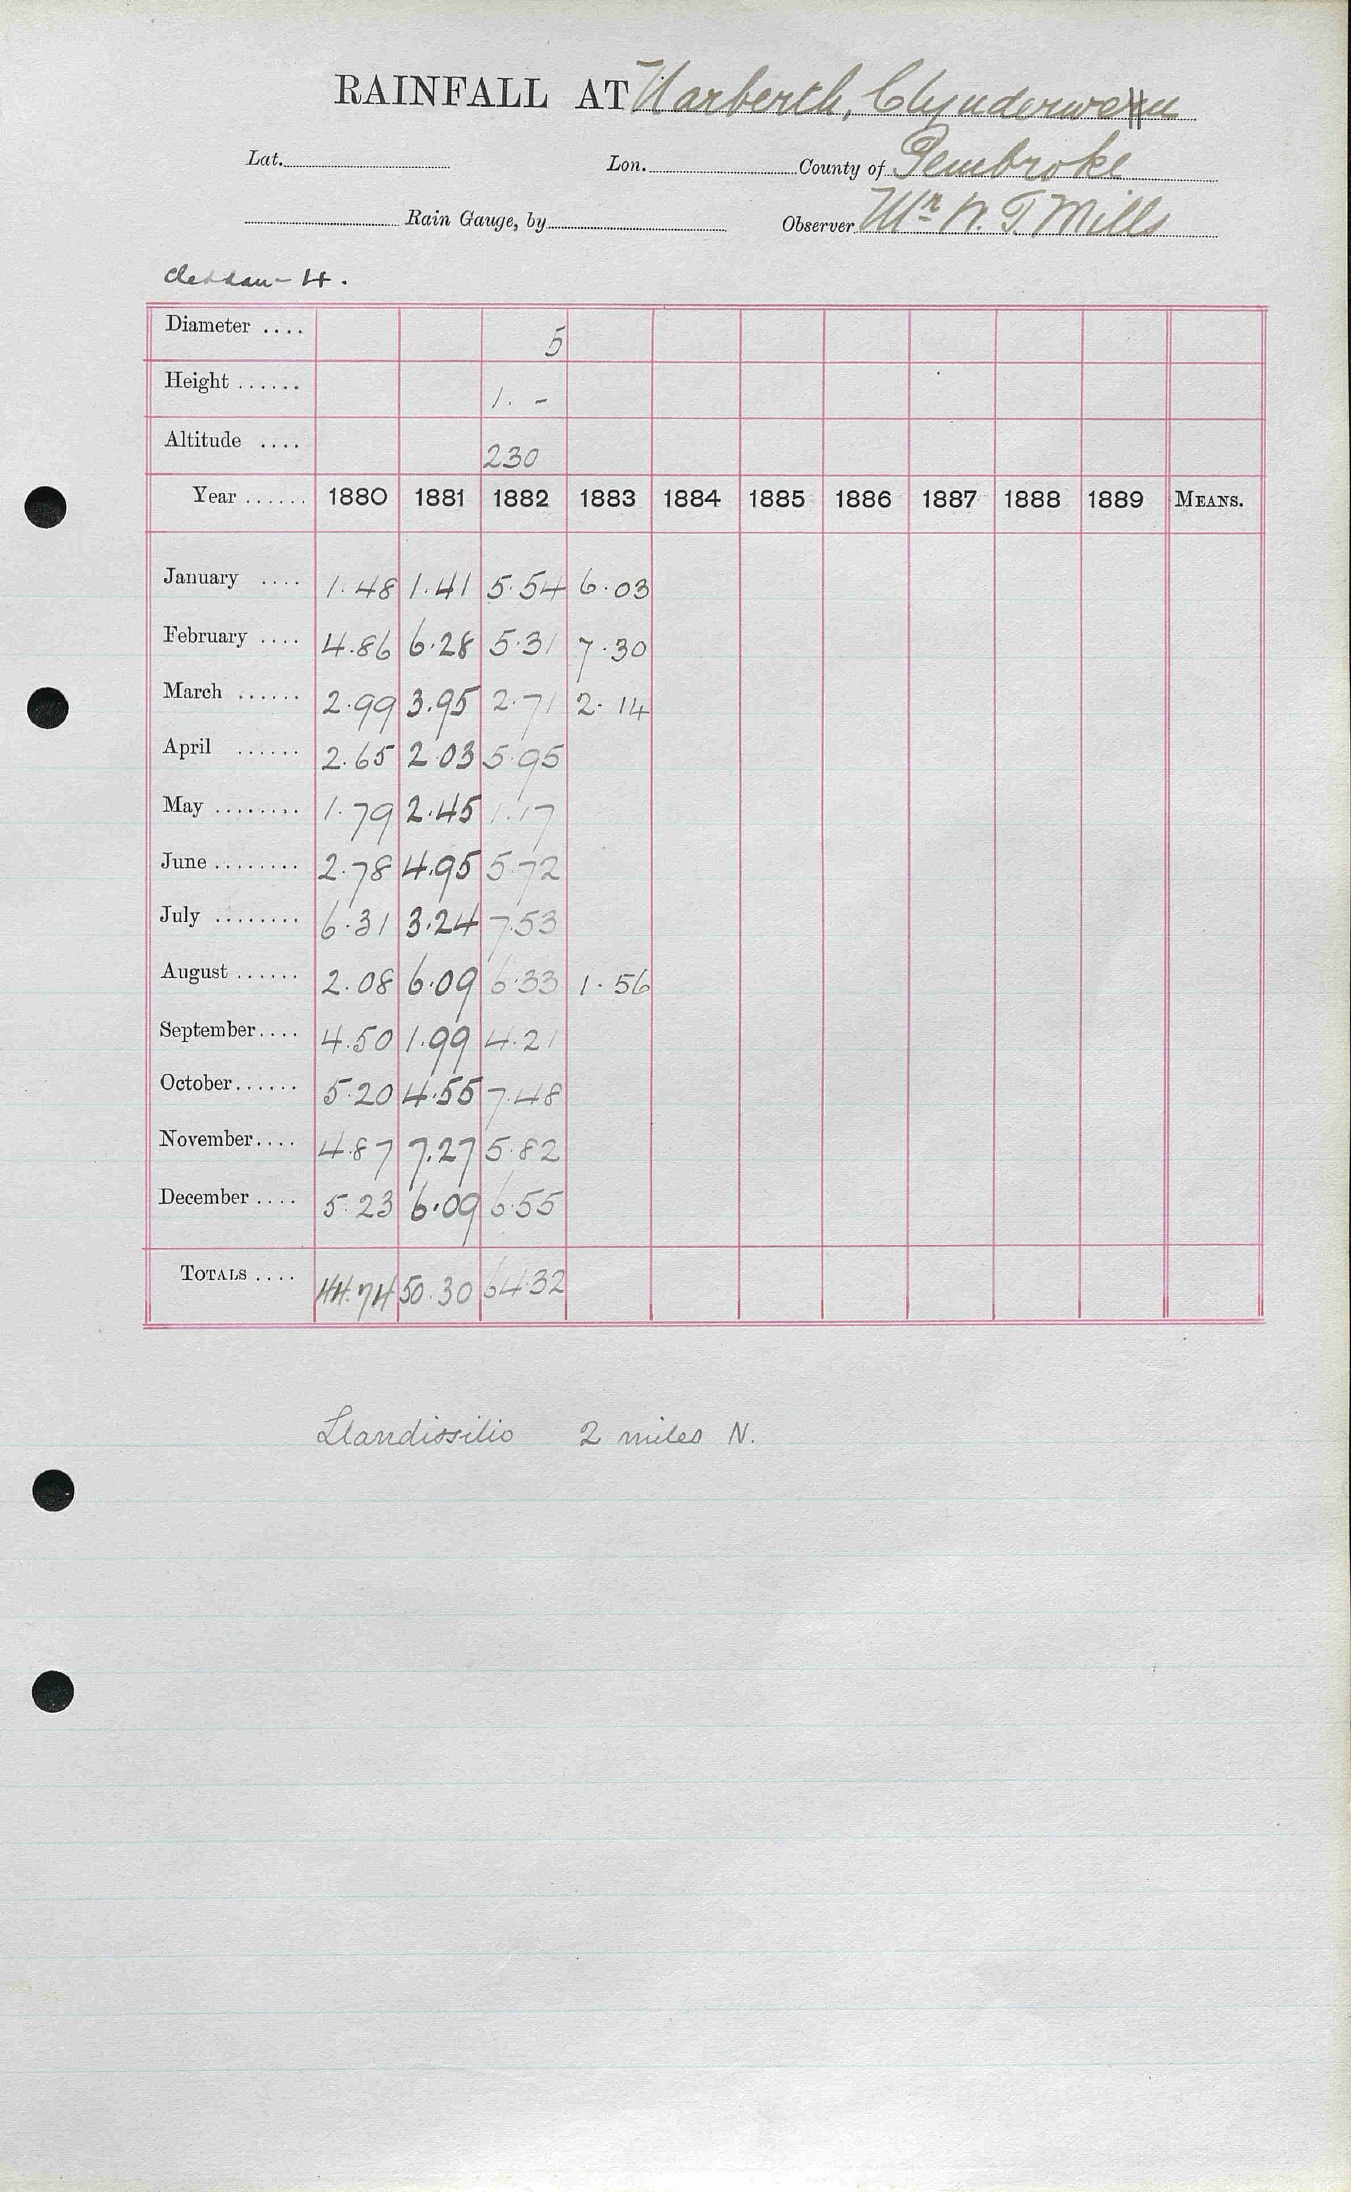 RAINFALL AT Narberth, Clynderwen
Lat. Lon. County of Pembroke
Rain Gauge, by Observer Mr W. T. Mills
Cleddau - 4.
Diameter .... 5
Height ...... 1. -
Altitude .... 230
Year ...... 1880 1881 1882 1883 1884 1885 1886 1887 1888 1889 MEANS.
January .... 1.48 1.41 5.54 6.03
February .... 4.86 6.28 5.31 7.30
March ...... 2.99 3.95 2.71 2.14
April ...... 2.65 2.03 5.95
May ........ 1.79 2.45 1.17
June ........ 2.78 4.95 5.72
July ........ 6.31 3.24 7.53
August ...... 2.08 6.09 6.33 1.56
September .... 4.50 1.99 4.21
October ...... 5.20 4.55 7.48
November .... 4.87 7.27 5.82
December .... 5.23 6.09 6.55
TOTALS .... 44.74 50.30 64.32
Llandissilio 2 miles N.